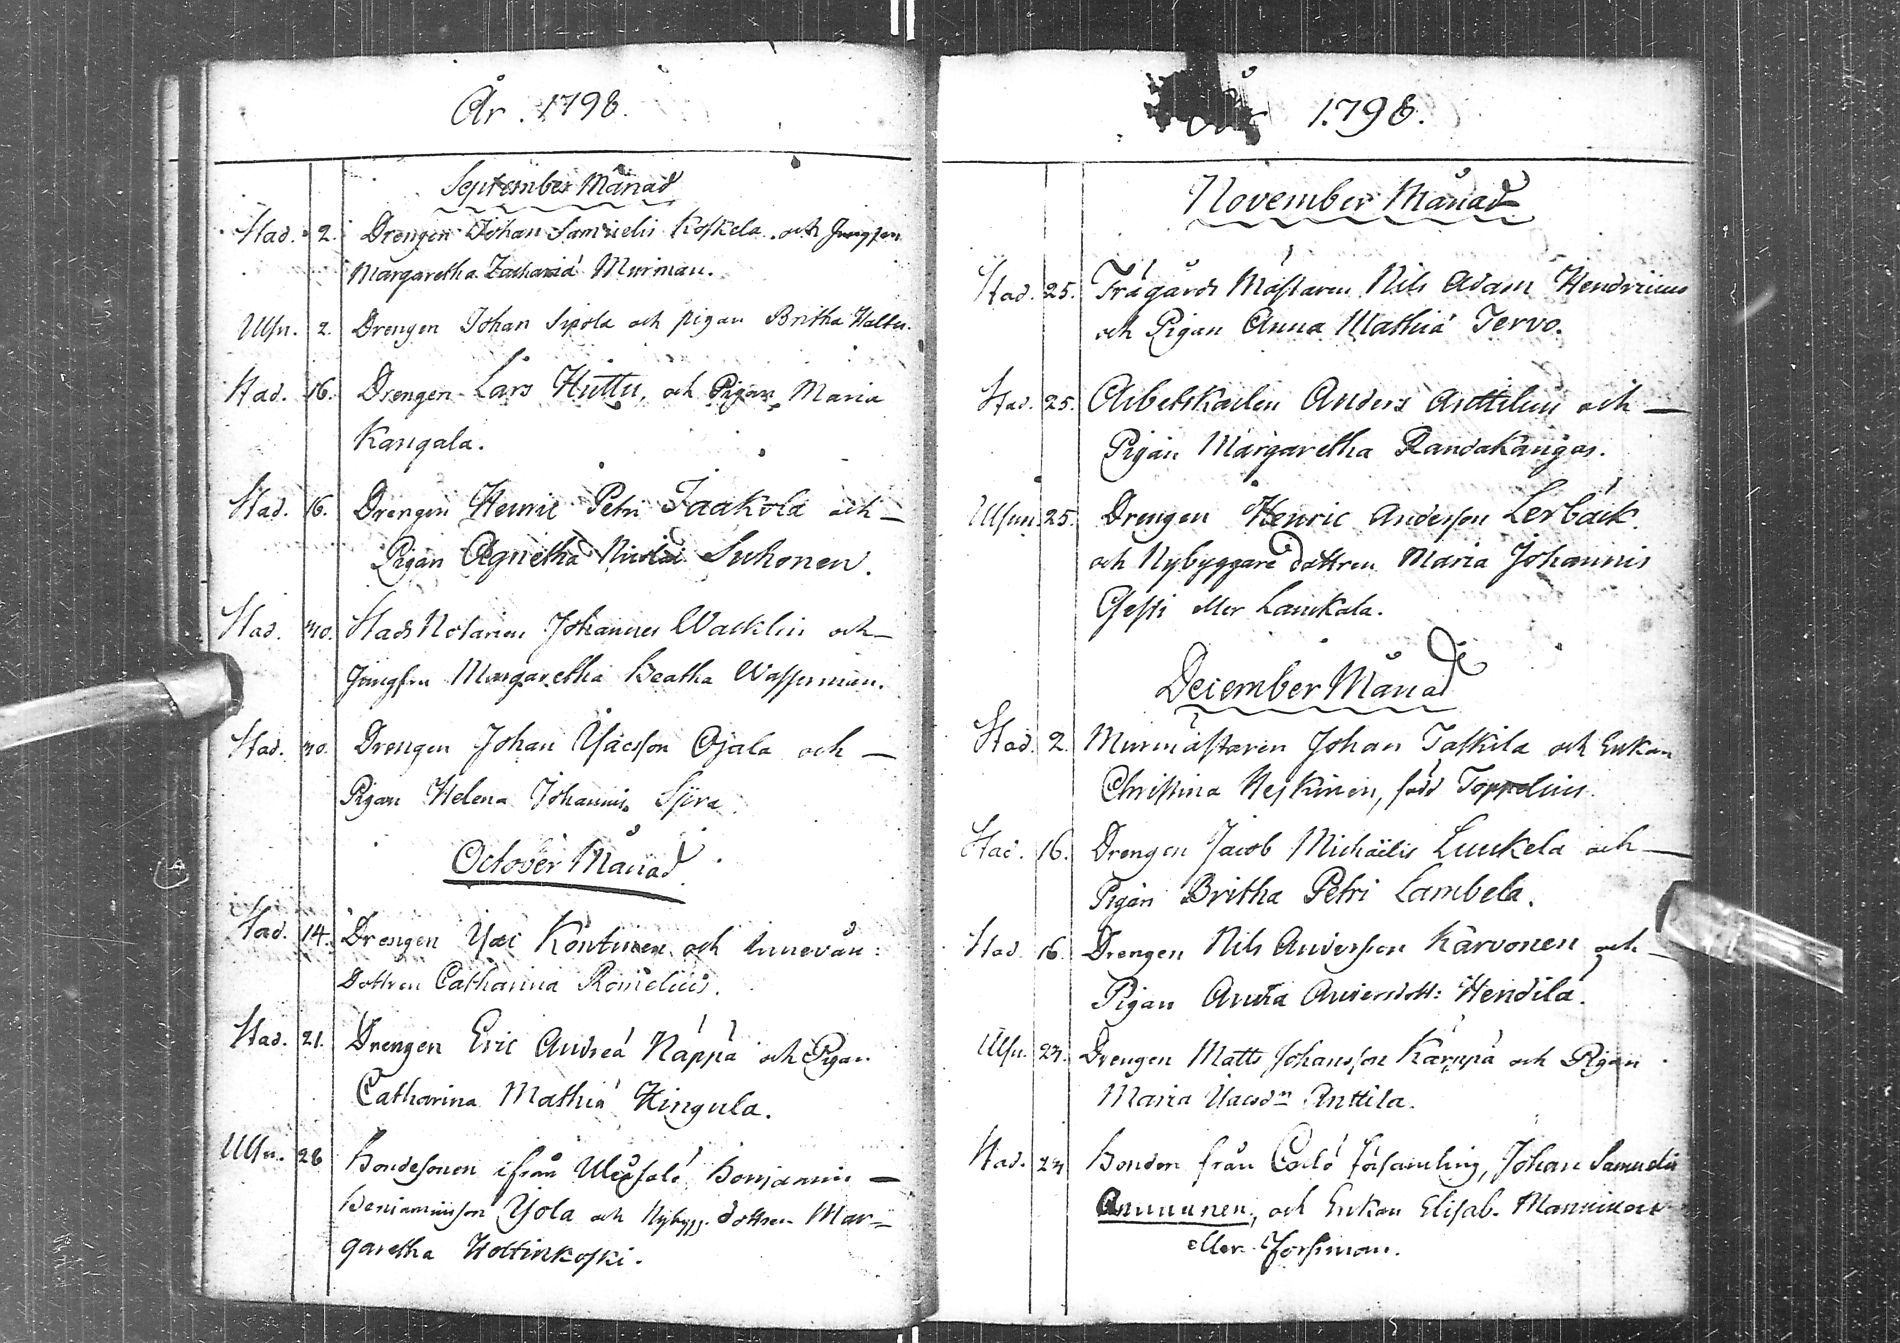 År. 1798.
September Månad
Stad. 2. Drengen Johan Samuelis Koskela och Jungfrun
Margaretha Zachariä Murman.
Ulfn. 2. Drengen Johan Sipola och pigan Britha Haltu.
Stad. 16. Drengen Lars Huttu, och Pigan Maria
Kangala.
Stad. 16. Drengen Henric Petri Jaakola och —
Pigan Agnetha Nicolai Suhonen.
Stad. 30. Stads Notarien Johannes Wacklin och —
Jungfru Margaretha Beatha Wasserman.
Stad. 30. Drengen Johan Isacsson Ojala och —
Pigan Helena Johannis
October Månad.
Stad. 14. Drengen Isac Kontinen och
Dottren Catharina Romelius.
Stad. 21. Drengen Eric Andreä Näppä och Pigan
Catharina Mathiä Hingula.
Ulfn. 28 Bondesonen ifrån Uleåsalo Benjamin —
Benjaminsson Yola och Nybygg. dottren Mar=
garetha Holtinkoski.
År 1798.
November Månad
Stad. 25. Trägårds Mästaren Nils Adam Hendricius
och Pigan Anna Mathiä Tervo.
Stad. 25. Arbetskarlen Anders Anttilus och —
Pigan Margaretha Randakangas.
Ulfn. 25. Drengen Henric Andersson Lerbäck
och Nybyggare dottren Maria Johannis
eller Laukala.
December Månad
Stad. 2 Murmästaren Johan Taskila och Enkan
Christina Heskinen, född Toppelius.
Stad. 16. Drengen Jacob Michaëlis Luukela och —
Pigan Britha Petri Lambela.
Stad. 16. Drengen Nils Andersson Karvonen och —
Pigan Anna Andersdott: Hendilä.
Ulfn. 23. Drengen Matts Johansson Kärppä och Pigan
Maria Isacsdr Anttila.
Stad. 23 Bonden från Carlö församling, Johan Samuelis
och Enkan Elisab. Manninen
eller Forsman.